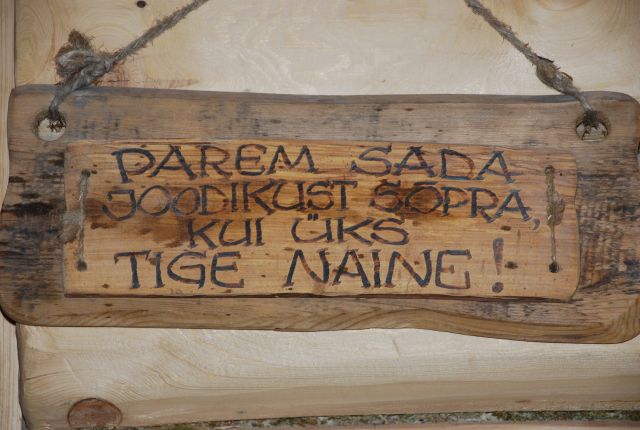 PAREM SADA
JOODIKUST SÕPRA,
KUI ÜKS
TIGE NAINE!